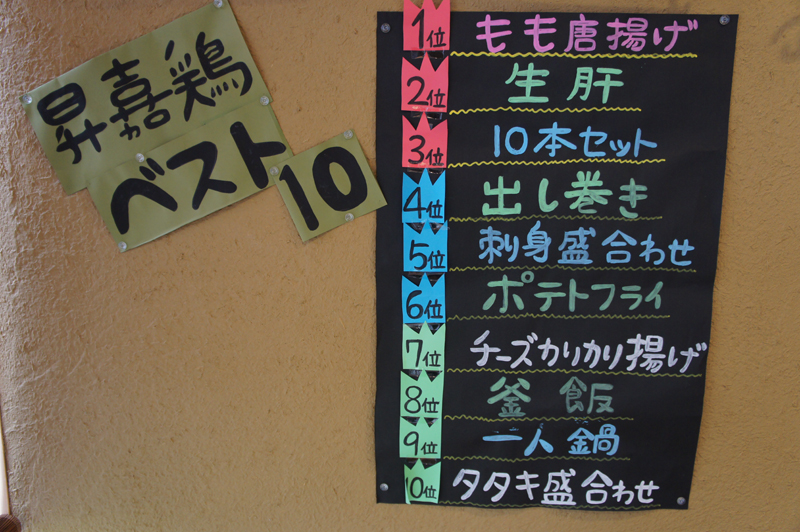 昇嘉鶏
ベスト10
1位 もも唐揚げ
2位 生肝
3位 10本セット
4位 出し巻き
5位 刺り身盛合わせ
6位 ポテトフライ
7位 チーズカリカリ揚げ
8位 釜飯
9位 一人鍋
10位 タタキ盛合わせ